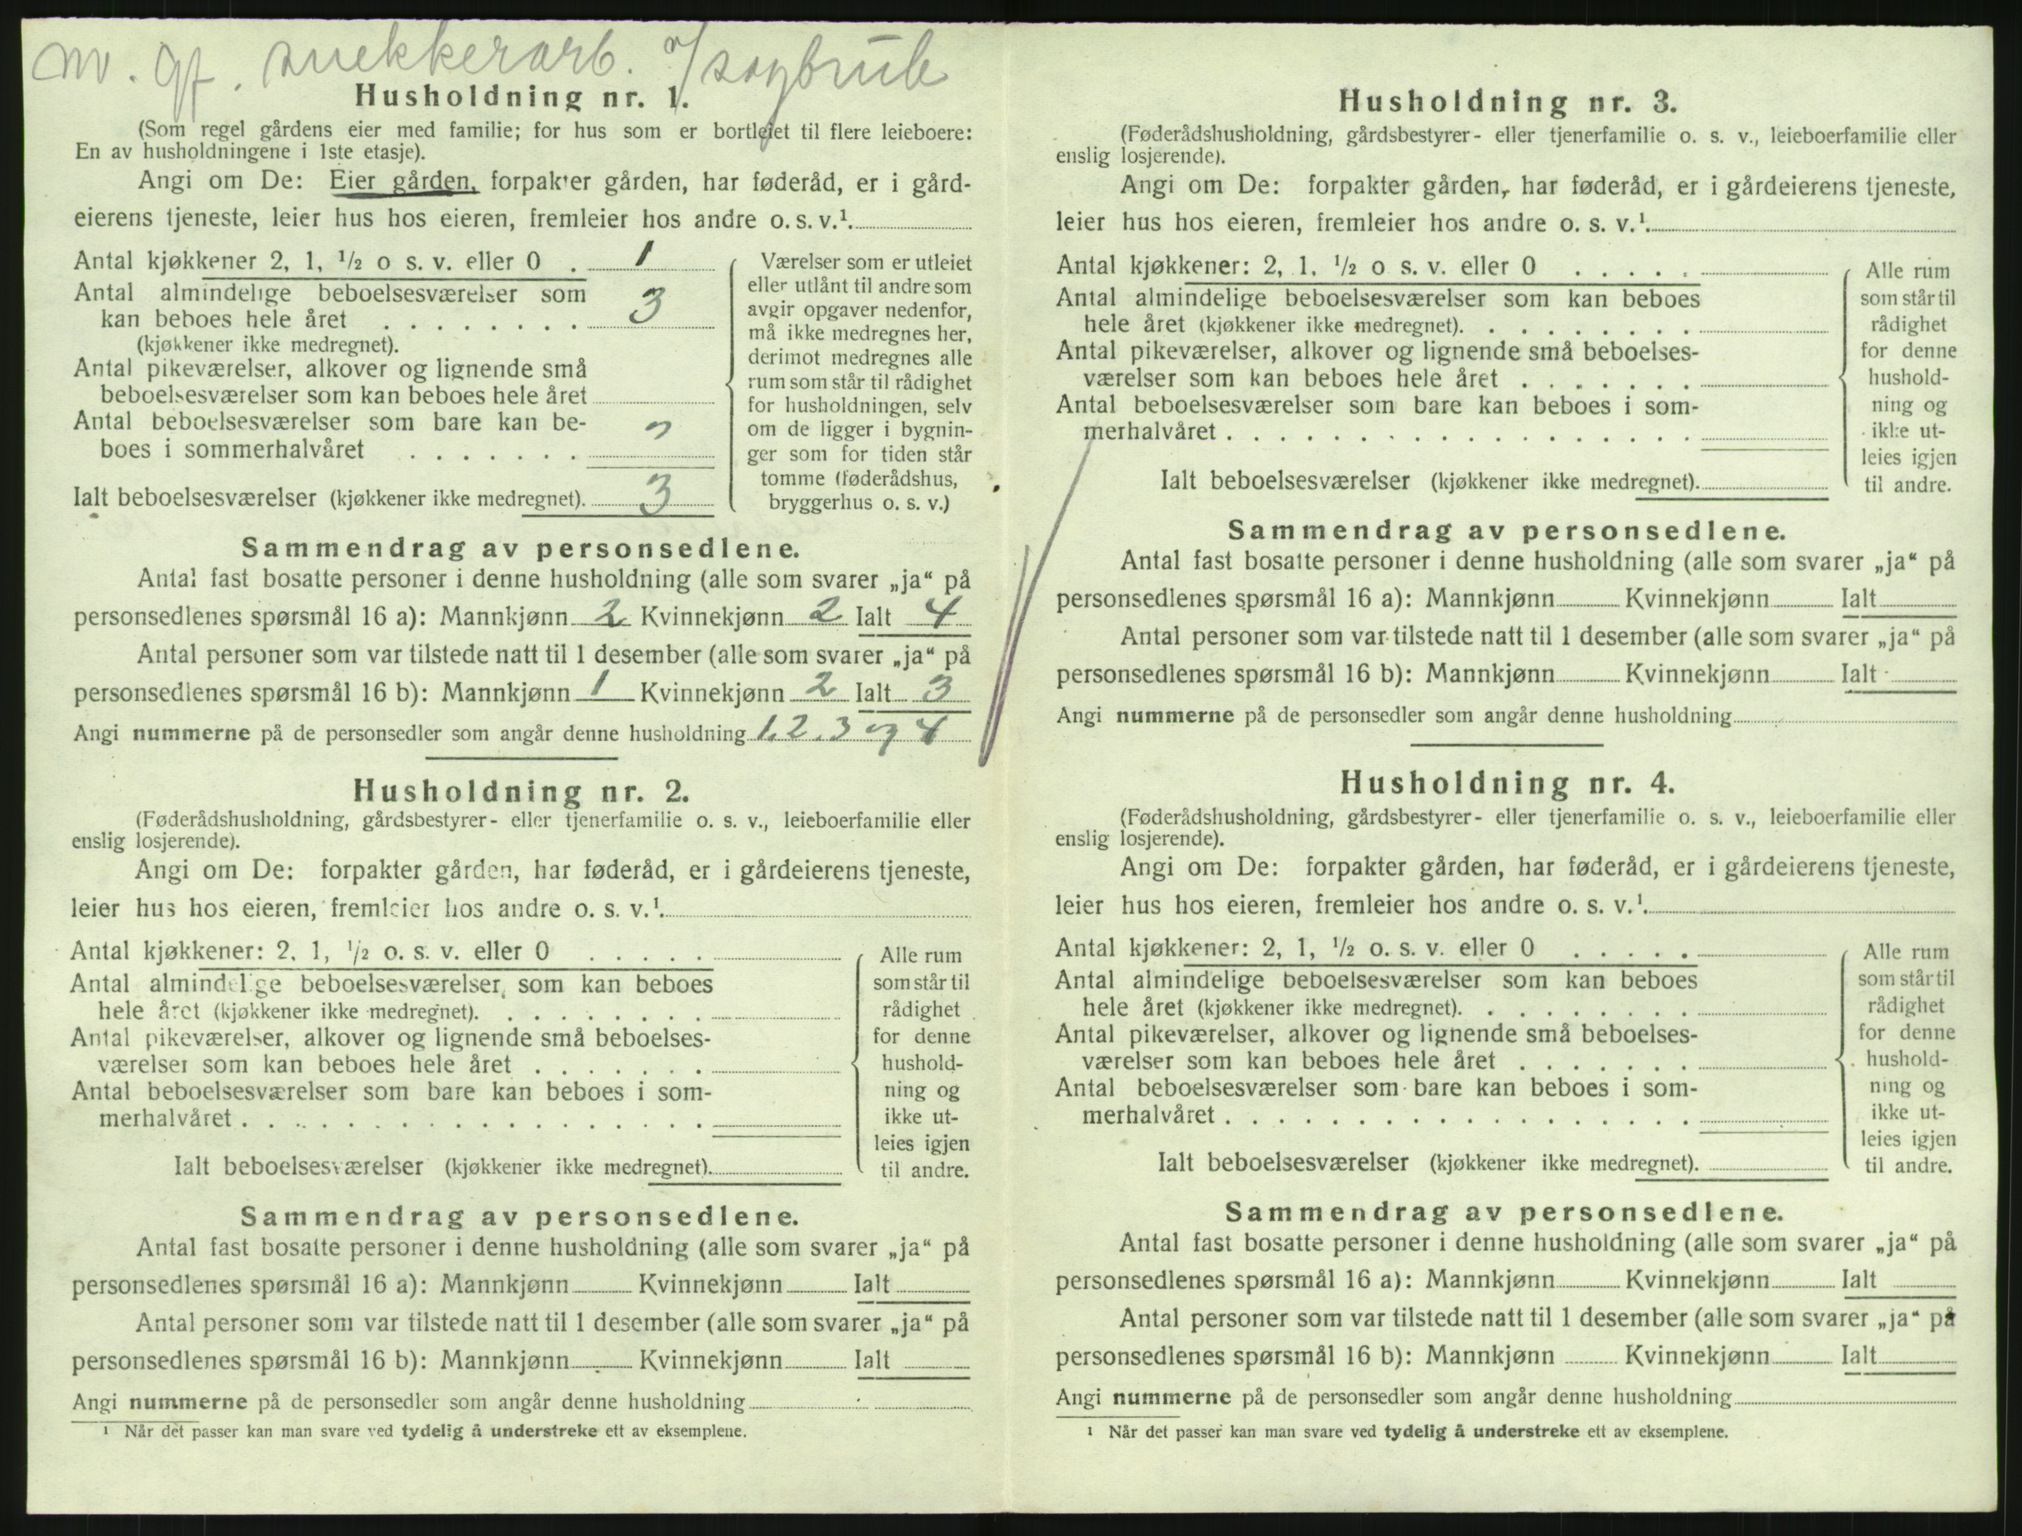 m. gf. snekkerarb. v/ sagbruk
Husholdning nr. 1.
(Som regel gårdens eier med familie; for hus som er bortleiet til flere leieboere:
En av husholdningene i 1ste etasje).
Angi om De: Eier gården, forpakter gården, har føderåd, er i gård-
eierens tjeneste, leier hus hos eieren, fremleier hos andre o. s. v.¹.
Antal kjøkkener 2, 1, ½ o s. v. eller 0 . 1
Antal almindelige beboelsesværelser som
kan beboes hele året . . . . . . . . 3
(kjøkkener ikke medregnet).
Antal pikeværelser, alkover og lignende små
beboelsesværelser som kan beboes hele året
Antal beboelsesværelser som bare kan be-
boes i sommerhalvåret . . . . . . .
Ialt beboelsesværelser (kjøkkener ikke medregnet). 3
Værelser som er utleiet
eller utlånt til andre som
avgir opgaver nedenfor,
må ikke medregnes her,
derimot medregnes alle
rum som står til rådighet
for husholdningen, selv
om de ligger i bygnin-
ger som for tiden står
tomme (føderådshus,
bryggerhus o. s. v.)
Sammendrag av personsedlene.
Antal fast bosatte personer i denne husholdning (alle som svarer „ja“ på
personsedlenes spørsmål 16 a): Mannkjønn 2 Kvinnekjønn 2 Ialt 4
Antal personer som var tilstede natt til 1 desember (alle som svarer „ja“ på
personsedlenes spørsmål 16 b): Mannkjønn 1 Kvinnekjønn 2 Ialt 3
Angi nummerne på de personsedler som angår denne husholdning 1, 2, 3 og 4
Husholdning nr. 2.
(Føderådshusholdning, gårdsbestyrer- eller tjenerfamilie o. s. v., leieboerfamilie eller
enslig losjerende).
Angi om De: forpakter gården, har føderåd, er i gårdeierens tjeneste,
leier hus hos eieren, fremleier hos andre o. s. v.¹.
Antal kjøkkener: 2, 1, ½ o. s. v. eller 0 . . . . .
Antal almindelige beboelsesværelser som kan beboes
hele året (kjøkkener ikke medregnet). . . . . . . . .
Antal pikeværelser, alkover og lignende små beboelses-
værelser som kan beboes hele året . . . . . . .
Antal beboelsesværelser som bare kan beboes i som-
merhalvåret . . . . . . . . . . . . . . . . . .
Ialt beboelsesværelser (kjøkkener ikke medregnet).
Alle rum
som står til
rådighet
for denne
hushold-
ning og
ikke ut-
leies igjen
til andre.
Sammendrag av personsedlene.
Antal fast bosatte personer i denne husholdning (alle som svarer „ja“ på
personsedlenes spørsmål 16 a): Mannkjønn Kvinnekjønn Ialt
Antal personer som var tilstede natt til 1 desember (alle som svarer „ja“ på
personsedlenes spørsmål 16 b): Mannkjønn Kvinnekjønn Ialt
Angi nummerne på de personsedler som angår denne husholdning
¹ Når det passer kan man svare ved tydelig å understreke ett av eksemplene.
Husholdning nr. 3.
(Føderådshusholdning, gårdsbestyrer- eller tjenerfamilie o. s. v., leieboerfamilie eller
enslig losjerende).
Angi om De: forpakter gården, har føderåd, er i gårdeierens tjeneste,
leier hus hos eieren, fremleier hos andre o. s. v.¹.
Antal kjøkkener: 2, 1, ½ o s. v. eller 0 . . . . .
Antal almindelige beboelsesværelser som kan beboes
hele året (kjøkkener ikke medregnet). . . . . . . . .
Antal pikeværelser, alkover og lignende små beboelses-
værelser som kan beboes hele året . . . . . . .
Antal beboelsesværelser som bare kan beboes i som-
merhalvåret . . . . . . . . . . . . . . . . . .
Ialt beboelsesværelser (kjøkkener ikke medregnet).
Alle rum
som står til
rådighet
for denne
hushold-
ning og
ikke ut-
leies igjen
til andre.
Sammendrag av personsedlene.
Antal fast bosatte personer i denne husholdning (alle som svarer „ja“ på
personsedlenes spørsmål 16 a): Mannkjønn Kvinnekjønn Ialt
Antal personer som var tilstede natt til 1 desember (alle som svarer „ja“ på
personsedlenes spørsmål 16 b): Mannkjønn Kvinnekjønn Ialt
Angi nummerne på de personsedler som angår denne husholdning
Husholdning nr. 4.
(Føderådshusholdning, gårdsbestyrer- eller tjenerfamilie o. s. v., leieboerfamilie eller
enslig losjerende).
Angi om De: forpakter gården, har føderåd, er i gårdeierens tjeneste,
leier hus hos eieren, fremleier hos andre o. s. v.¹.
Antal kjøkkener: 2, 1, ½ o. s. v. eller 0 . . . . .
Antal almindelige beboelsesværelser som kan beboes
hele året (kjøkkener ikke medregnet). . . . . . . . .
Antal pikeværelser, alkover og lignende små beboelses-
værelser som kan beboes hele året . . . . . . .
Antal beboelsesværelser som bare kan beboes i som-
merhalvåret . . . . . . . . . . . . . . . . . .
Ialt beboelsesværelser (kjøkkener ikke medregnet).
Alle rum
som står til
rådighet
for denne
hushold-
ning og
ikke ut-
leies igjen
til andre.
Sammendrag av personsedlene.
Antal fast bosatte personer i denne husholdning (alle som svarer „ja“ på
personsedlenes spørsmål 16 a): Mannkjønn Kvinnekjønn Ialt
Antal personer som var tilstede natt til 1 desember (alle som svarer „ja“ på
personsedlenes spørsmål 16 b): Mannkjønn Kvinnekjønn Ialt
Angi nummerne på de personsedler som angår denne husholdning
¹ Når det passer kan man svare ved tydelig å understreke ett av eksemplene.